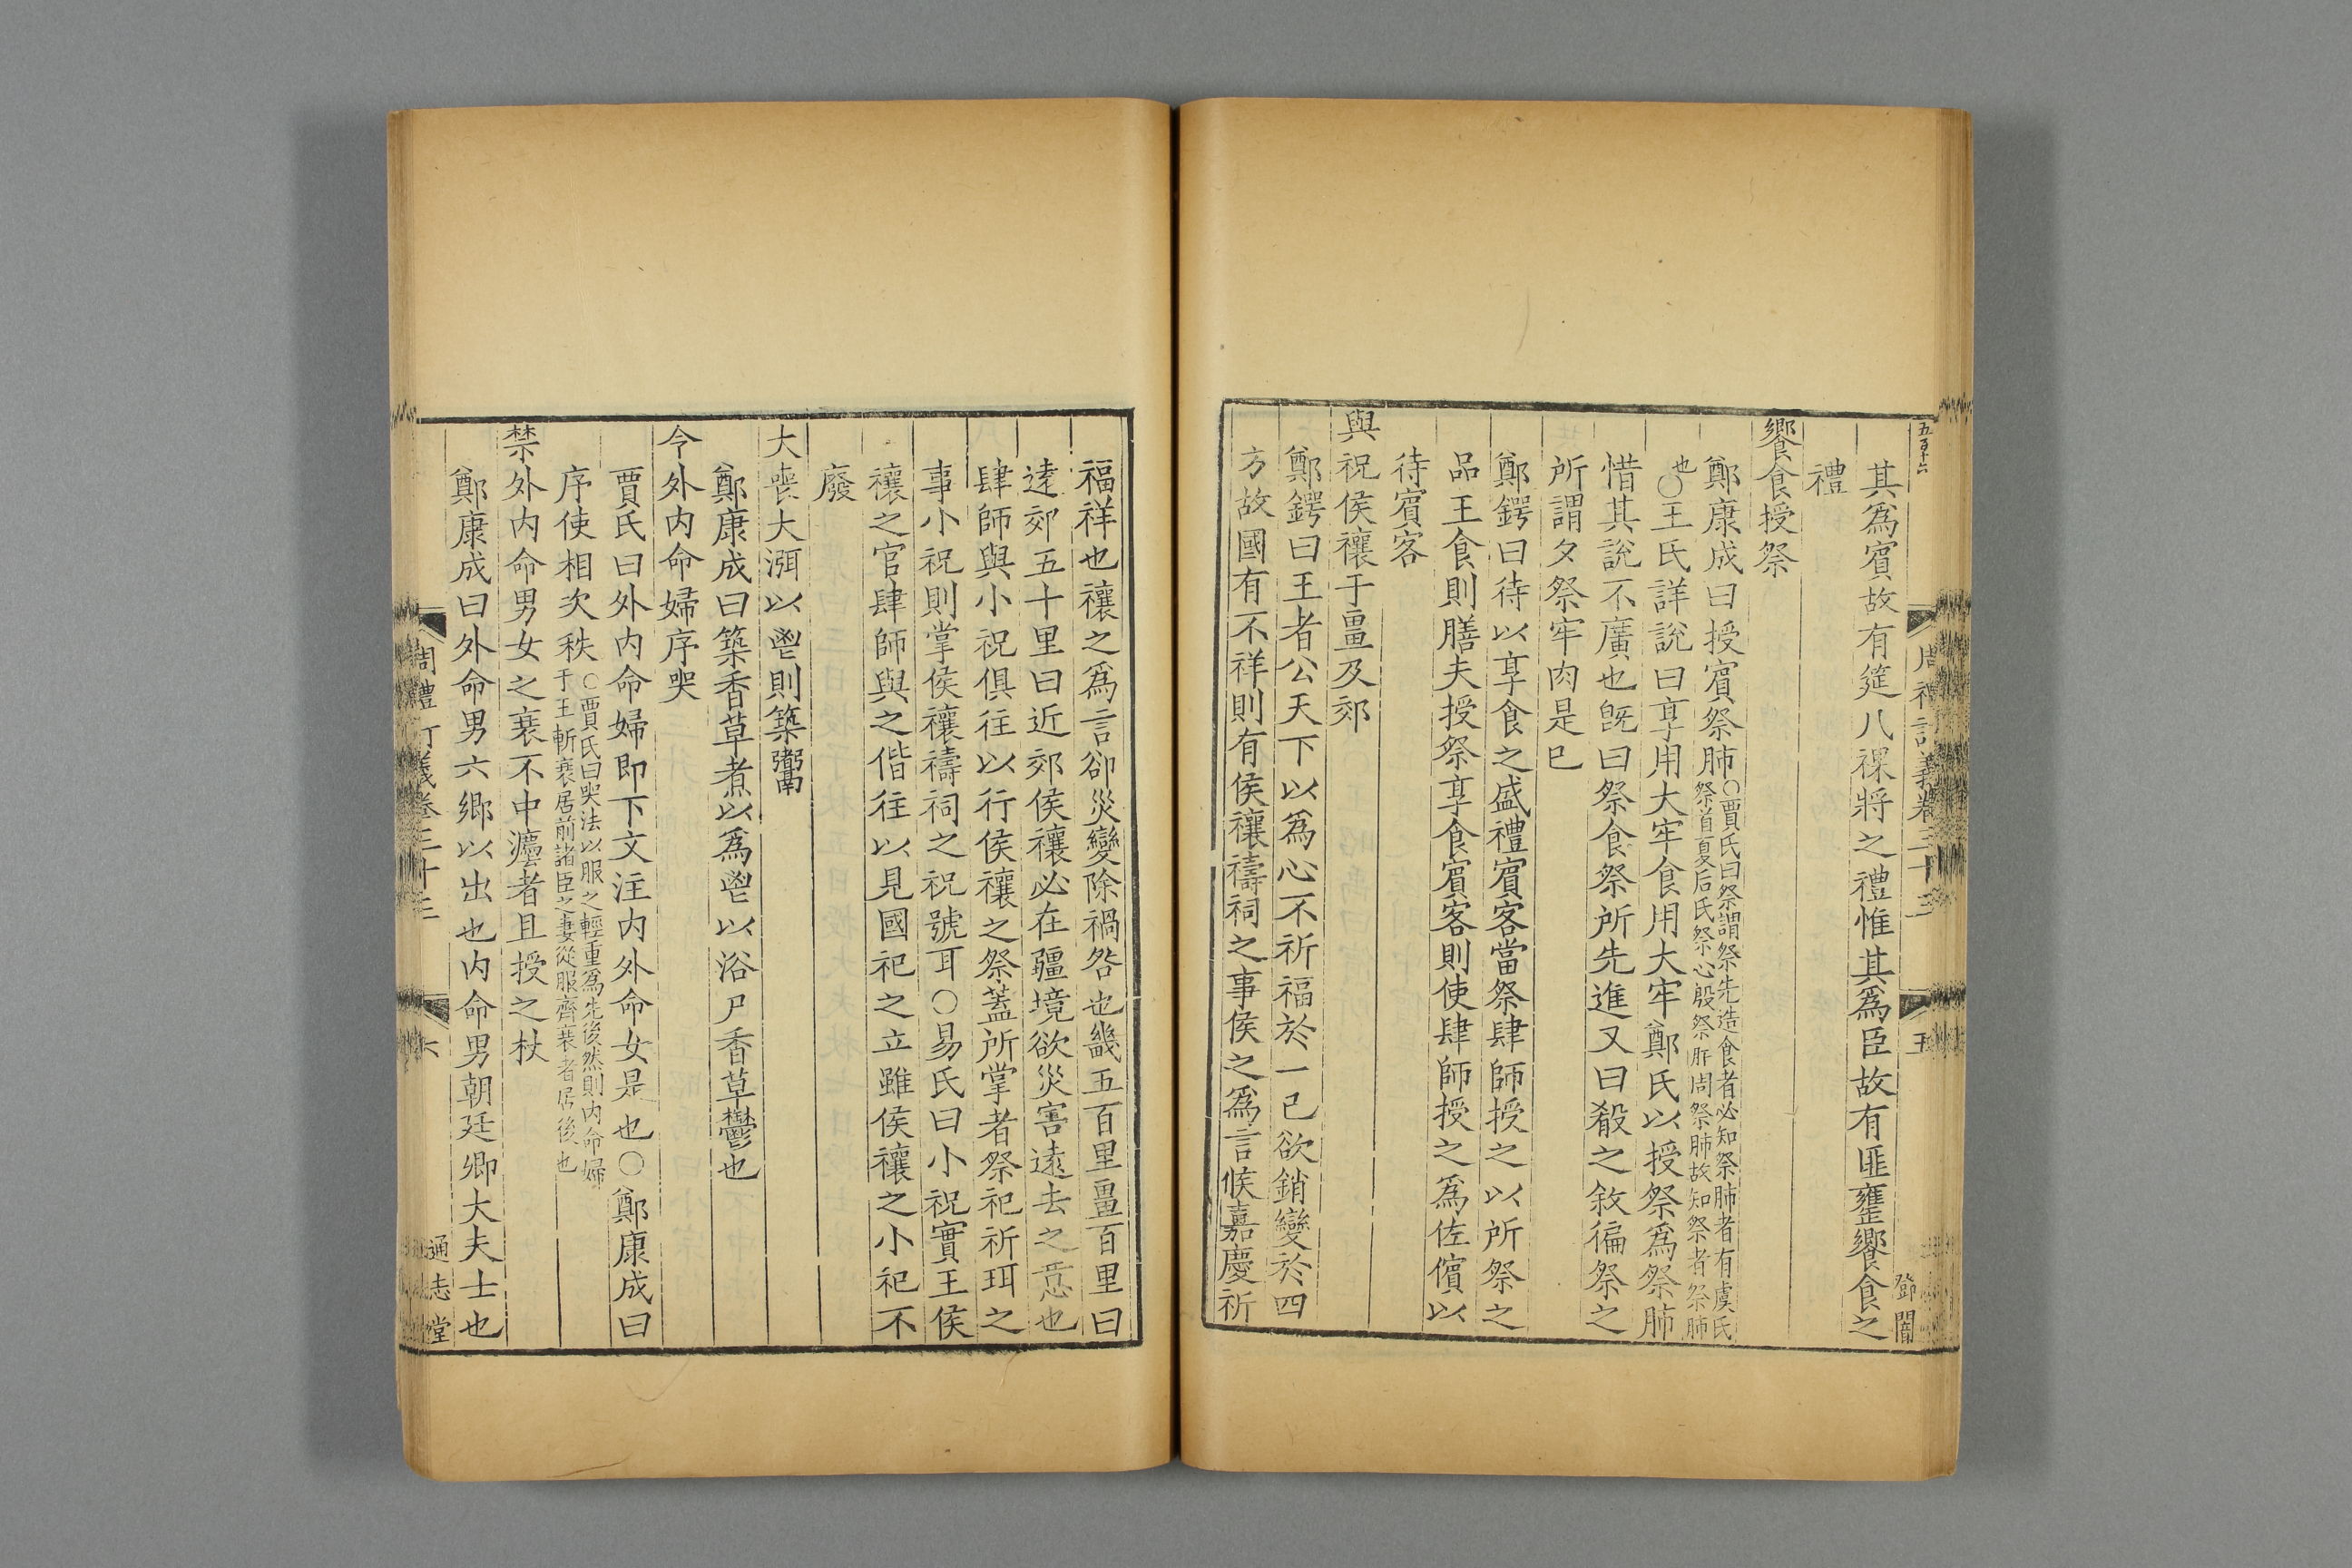 五百十六
周禮訂義卷三十三
五
鄧闇
其爲賓故有筵八祼將之禮惟其爲臣故有匪罋饗食之
禮
饗食授祭
鄭康成曰授賓祭肺○賈氏曰祭謂祭先造食者必知祭肺者有虞氏
祭首夏后氏祭心殷祭肝周祭肺故知祭者祭肺
也○王氏詳說曰享用大牢食用大牢鄭氏以授祭爲祭肺
惜其說不廣也旣曰祭食祭所先進又曰殽之敘徧祭之
所謂夕祭牢肉是已
鄭鍔曰待以享食之盛禮賓客當祭肆師授之以所祭之
品王食則膳夫授祭享食賓客則使肆師授之爲佐儐以
待賓客
與祝侯禳于畺及郊
鄭鍔曰王者公天下以爲心不祈福於一己欲銷變於四
方故國有不祥則有侯禳禱祠之事侯之爲言候嘉慶祈
福祥也禳之爲言卻災變除禍咎也畿五百里畺百里曰
逺郊五十里曰近郊侯禳必在疆境欲災害遠去之意也
肆師與小祝俱往以行侯禳之祭蓋所掌者祭祀祈珥之
事小祝則掌侯禳禱祠之祝號耳○易氏曰小祝實王侯
禳之官肆師與之偕往以見國祀之立雖侯禳之小祀不
廢
大喪大渳以鬯則築鬻
鄭康成曰築香草煮以爲鬯以浴尸香草鬱也
令外內命婦序哭
賈氏曰外內命婦即下文注內外命女是也○鄭康成曰
序使相次秩○賈氏曰哭法以服之輕重爲先後然則內命婦
于王斬衰居前諸臣之妻從服齊衰者居後也
禁外內命男女之衰不中灋者且授之杖
鄭康成曰外命男六鄉以出也內命男朝廷卿大夫士也
周禮訂義卷三十三
六
通志堂